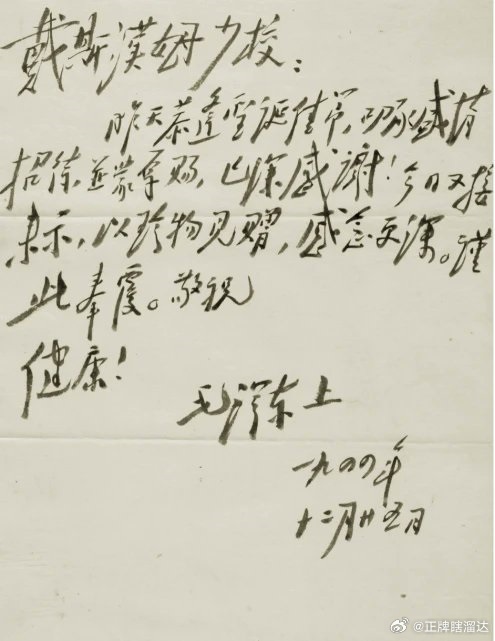 戴斯漢姆少校：
昨天恭逢聖誕佳节，叨承盛情
招待，並蒙厚赐，已深感谢！今日又接
来示，以珍物見贈，感念更深。谨
此奉覆。敬祝
健康！
毛泽东上
一九四四年
十二月廿五日
@正牌瞎溜达